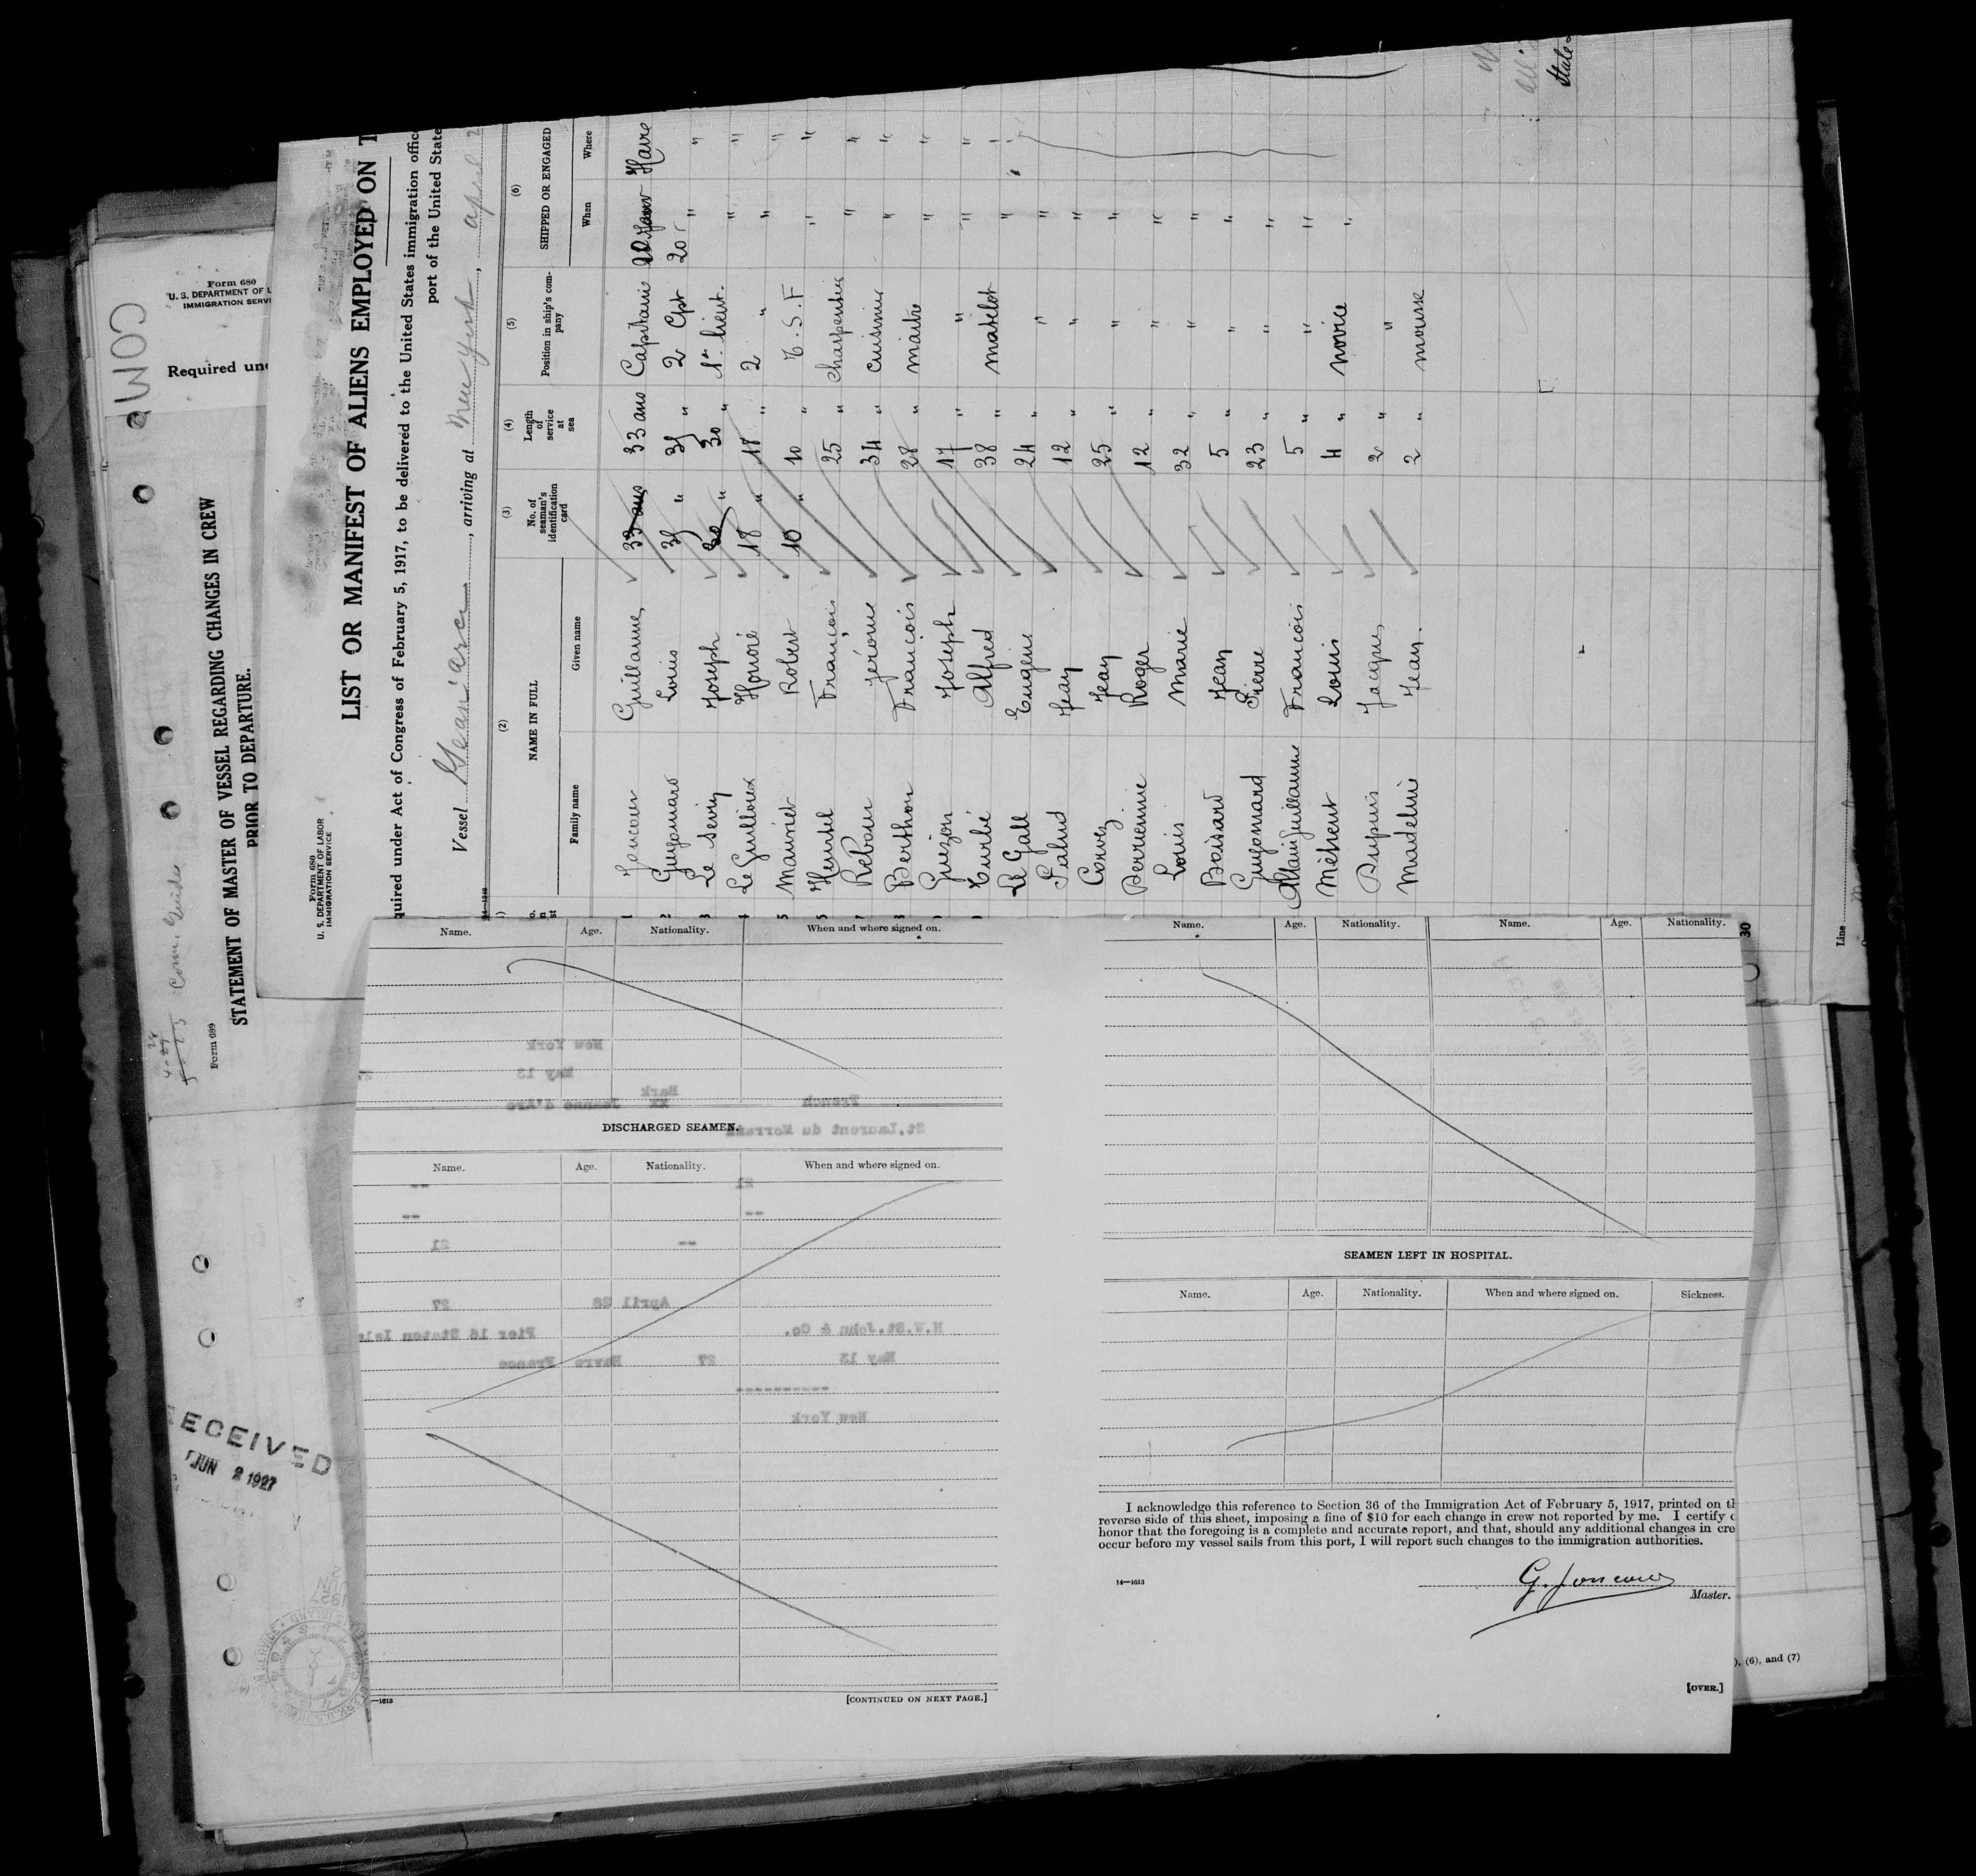 COM
Form 680
U. S. DEPARTMENT OF L
IMMIGRATION SERVI
Required und
Form 689
STATEMENT OF MASTER OF VESSEL REGARDING CHANGES IN CREW
PRIOR TO DEPARTURE.
Form 680
U. S. DEPARTMENT OF LABOR
IMMIGRATION SERVICE
LIST OR MANIFEST OF ALIENS EMPLOYED ON T
quired under Act of Congress of February 5, 1917, to be delivered to the United States immigration offic
port of the United State
Vessel Jean d'arc, arriving at New York, april 2
(2) (3) (4) (5) (6)
NAME IN FULL No. of seaman's identification card Length of service at sea Position in ship's company SHIPPED OR ENGAGED
Family name Given name When Where
1 Joncour Guillaume 33 ans 33 ans Capitaine Havre
2 Guyomard Louis " " 2 Cpt 20
3 Le Seviy Joseph 30 " 30 " 1er lieut. " "
4 Le Guilloux Honoré 18 " 18 " 2 " " "
5 Mauviet Robert 10 " 10 " T.S.F " "
Heurtel François 25 " charpentier " "
7 Rebour Jérome 34 " cuisinier " "
8 Berthou François 28 " maitre " "
Guezou Joseph 17 " " " "
Turbé Alfred 38 " matelot " "
Le Gall Eugène 24 " " "
Salud Jean 12 " " "
Corvez Jean 25 " " "
Perrienne Roger 12 " " "
Louis Marie 32 " " "
Boisard Jean 5 " " "
Guyomard Pierre 23 " " "
Allainguillaume François 5 " " "
Méheut Louis 4 " novice "
Dupuis Jacques 2 " "
Madeline Jean. 2 " mousse
30
Line
Name. Age. Nationality. When and where signed on.
New York
May 13
Bark
French xx Jeanne d'Arc
DISCHARGED SEAMEN.
Name. Age. Nationality. When and where signed on.
21
--
-- 21
April 28 27
H.W.St.John & Co. Pier 16 Staten Isl
May 13 27 Havre France
-----------
New York
—1613
[CONTINUED ON NEXT PAGE.]
Name. Age. Nationality. Name. Age. Nationality.
SEAMEN LEFT IN HOSPITAL.
Name. Age. Nationality. When and where signed on. Sickness.
I acknowledge this reference to Section 36 of the Immigration Act of February 5, 1917, printed on th
reverse side of this sheet, imposing a fine of $10 for each change in crew not reported by me. I certify o
honor that the foregoing is a complete and accurate report, and that, should any additional changes in cre
occur before my vessel sails from this port, I will report such changes to the immigration authorities.
14—1613
G. Joncour
Master.
[OVER.]
), (6), and (7)
ECEIVED
JUN 2 1927